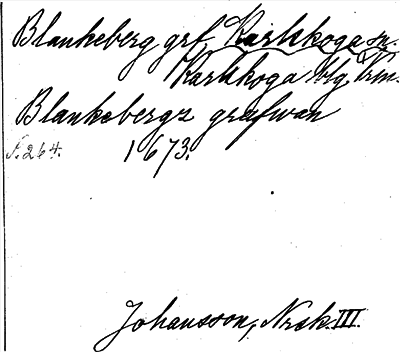 Blankeberg grf Karlskoga sn.
Karlskoga blg Vrm.
Blankebergz grufwan
S. 264. 1673.
Johansson, Nrsk. III.